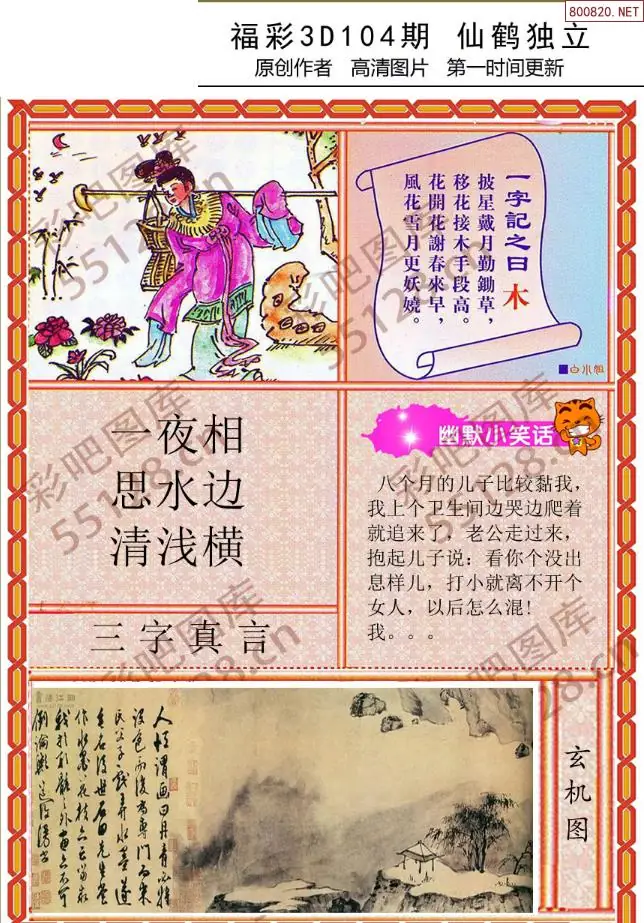 800820.NET
福彩3D104期 仙鹤独立
原创作者 高清图片 第一时间更新
一字記之曰 木
披星戴月勤鋤草，
移花接木手段高。
花開花謝春來早，
風花雪月更妖嬈。
白小姐
一夜相
思水边
清浅横
三字真言
幽默小笑话
八个月的儿子比较黏我，
我上个卫生间边哭边爬着
就追来了，老公走过来，
抱起儿子说：看你个没出
息样儿，打小就离不开个
女人，以后怎么混!
我。。。
玄机图
彩吧图库
55128.cn
彩吧图库
55128.cn
彩吧图库
55128.cn
彩吧图库
55128.cn